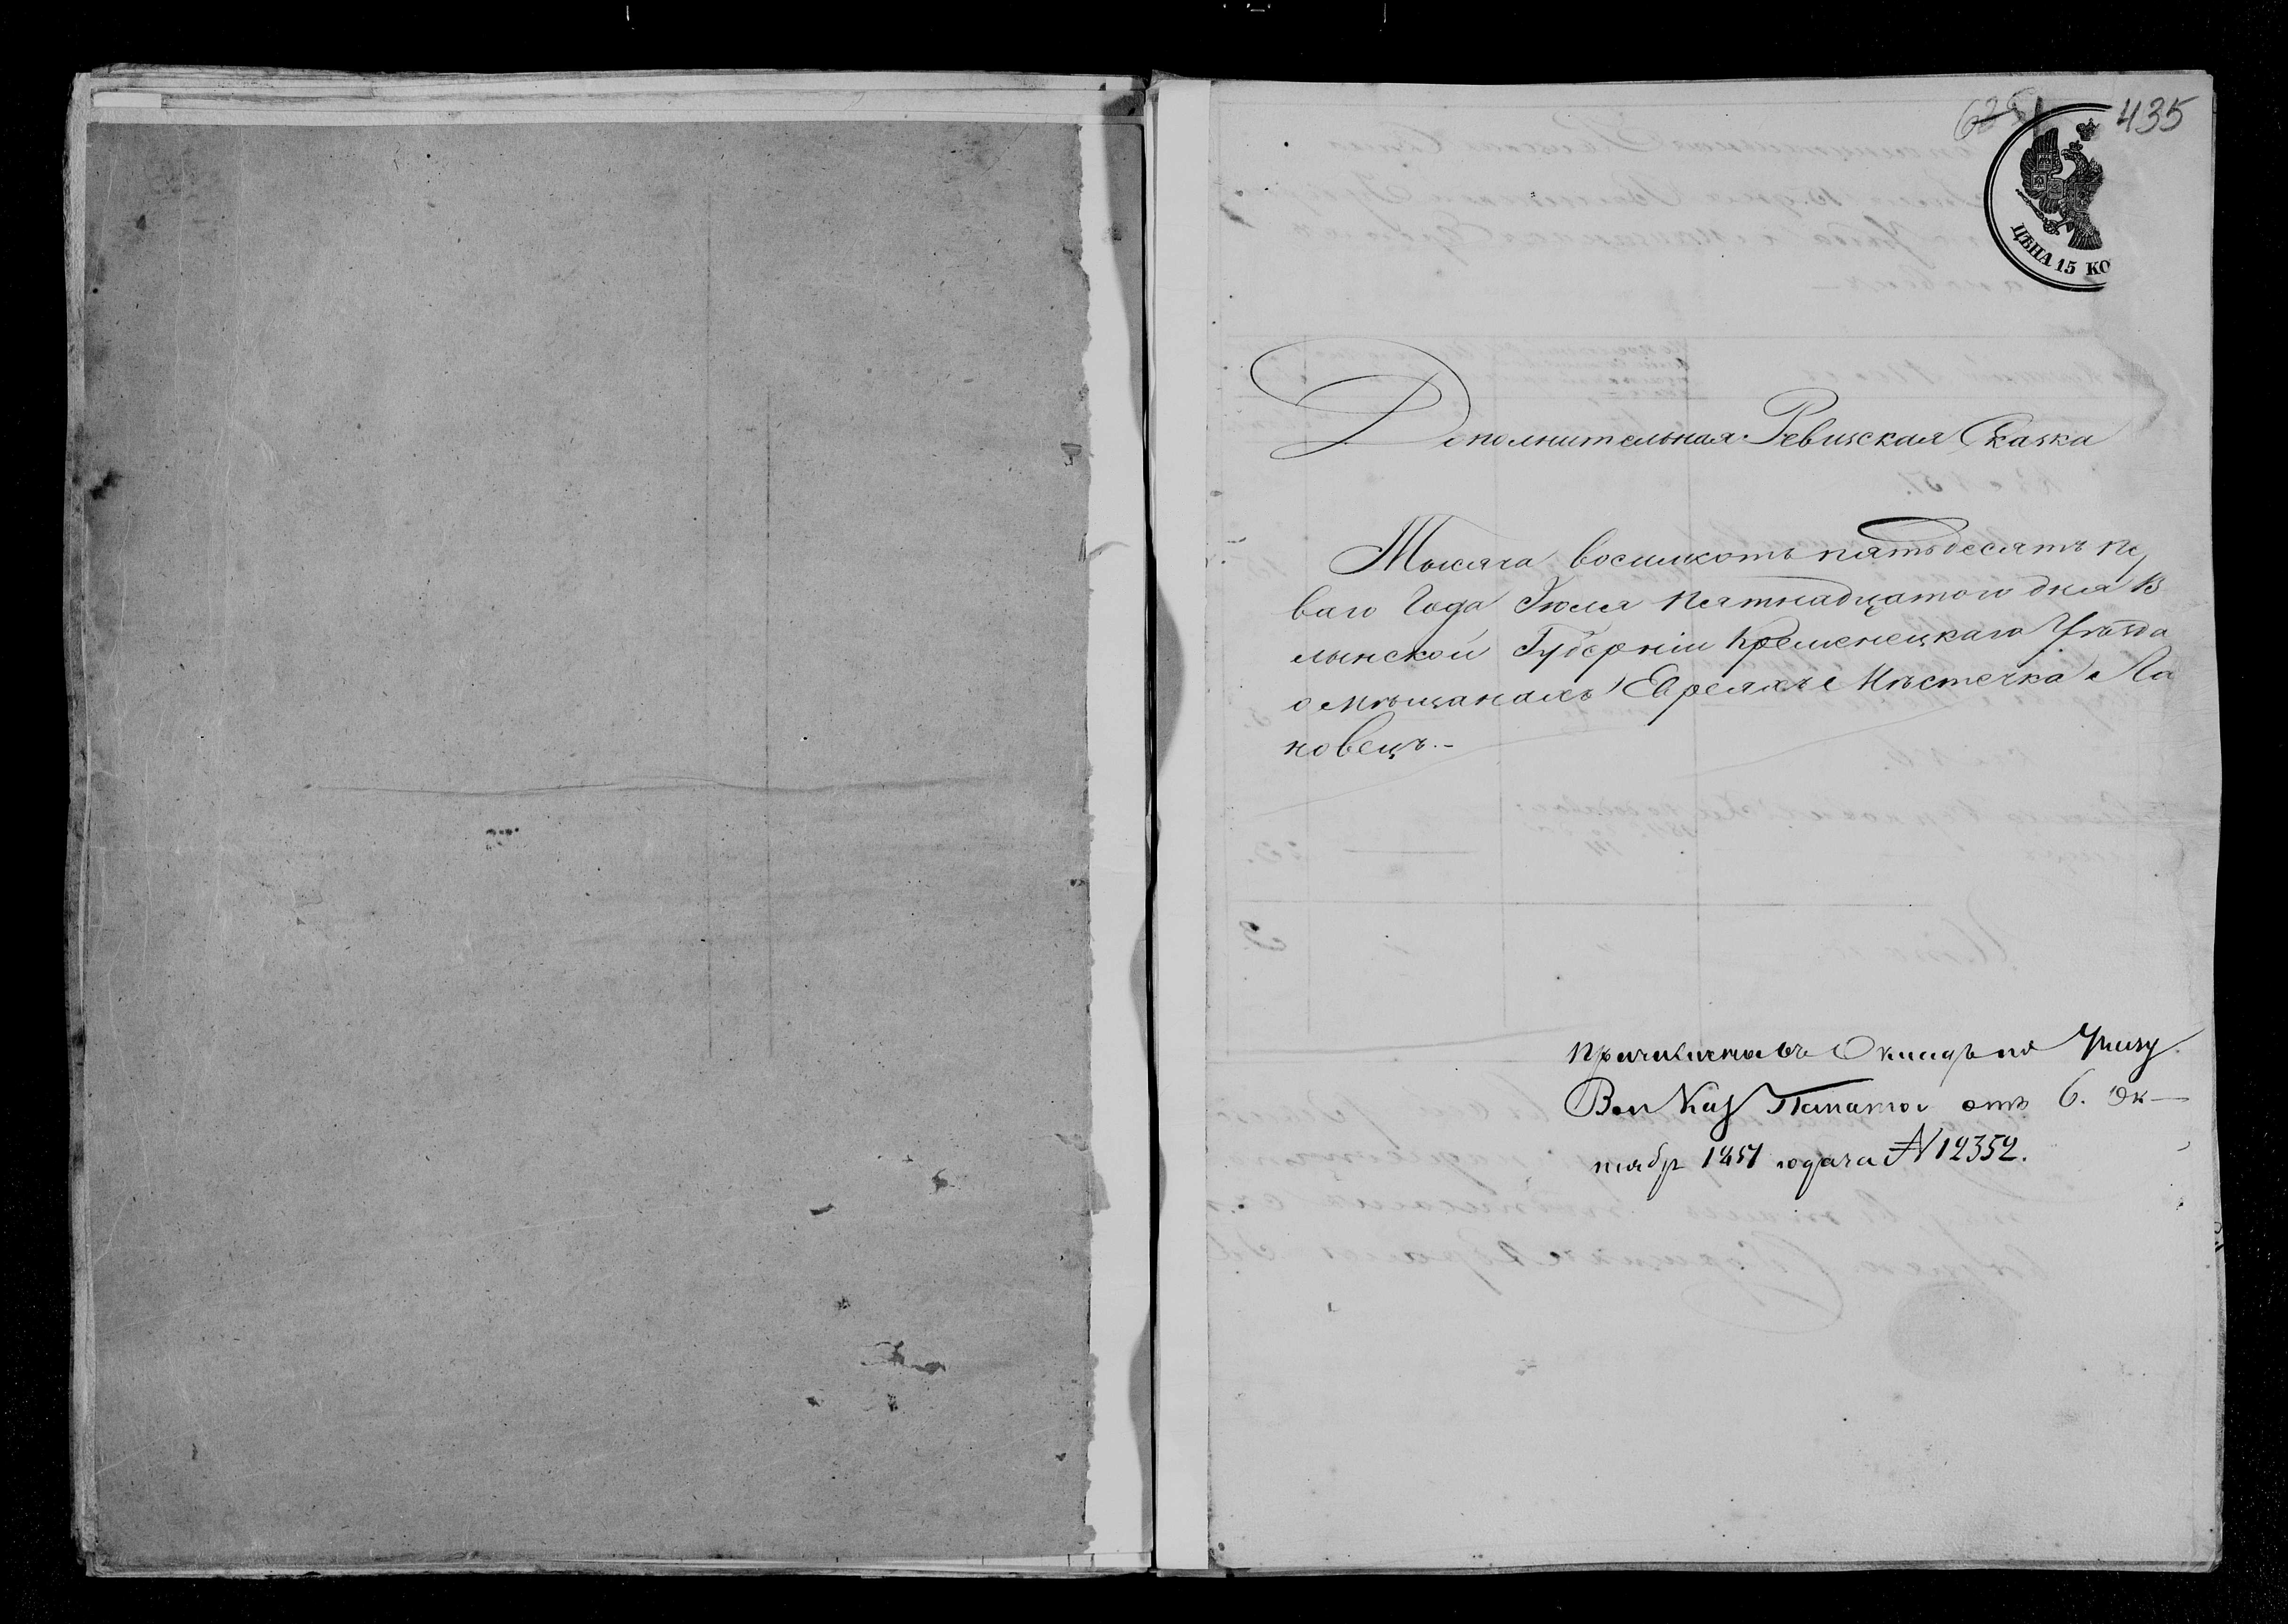 625 435
ЦѢНА 15 КО
Дополнительная Ревизская Сказка
Тысяча восимсотъ пятьдесятъ пе
ваго Года Іюля Пятнадцатого дня В
лынской Губерніи Кременецкаго Уѣзда
о мѣщанахъ Евреяхъ Мѣстечка Ла
новецъ.-
Причислить въ Окладъ по Указу
Вол Каз Палаты отъ 6. Ок-
тябр 1851 года за № 12352.